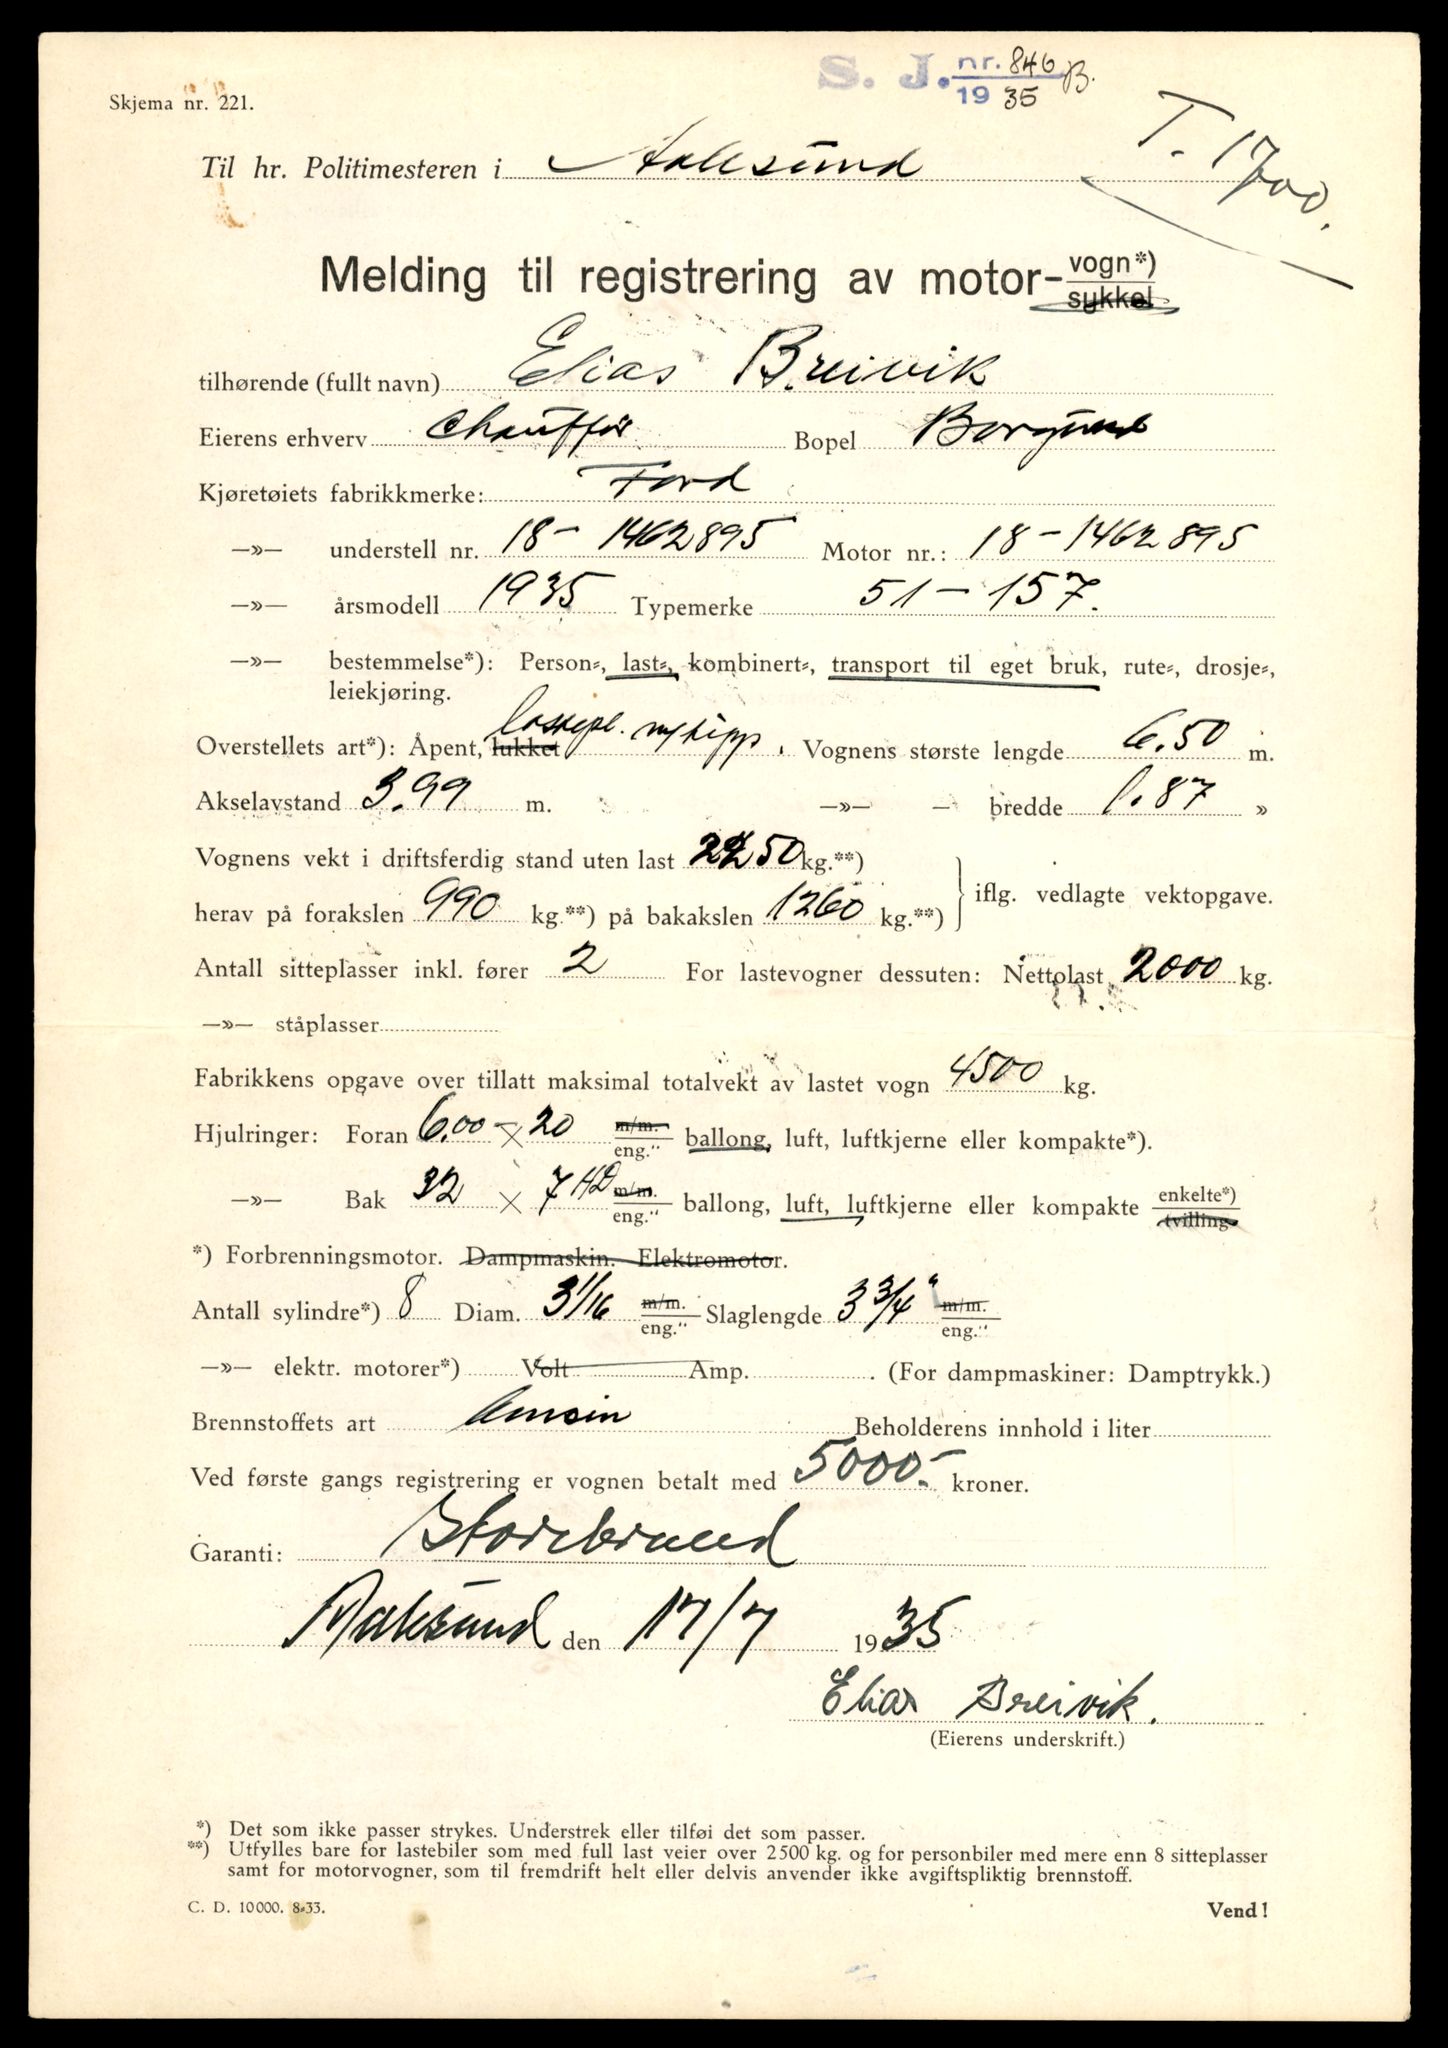 S. J. nr. 846 B.
19 35
Skjema nr. 221.
T. 1700.
Til hr. Politimesteren i Aalesund
Melding til registrering av motor-vogn*)
sykkel
tilhørende (fullt navn) Elias Breivik
Eierens erhverv Chauffør Bopel Borgund
Kjøretøiets fabrikkmerke: Ford
—»— understell nr. 18 - 1462895 Motor nr.: 18 - 1462895
—»— årsmodell 1935 Typemerke 51 - 157.
—»— bestemmelse*): Person-, last-, kombinert-, transport til eget bruk, rute-, drosje-,
leiekjøring.
Overstellets art*): Åpent, lukket lastepl. m/tipp. Vognens største lengde 6.50 m.
Akselavstand 3.99 m. —»— — bredde 1.87 »
Vognens vekt i driftsferdig stand uten last 2250 kg.**)
herav på forakslen 990 kg.**) på bakakslen 1260 kg.**) iflg. vedlagte vektopgave.
Antall sitteplasser inkl. fører 2 For lastevogner dessuten: Nettolast 2000 kg.
—»— ståplasser
Fabrikkens opgave over tillatt maksimal totalvekt av lastet vogn 4500 kg.
Hjulringer: Foran 6.00 - × 20 m/m. eng." ballong, luft, luftkjerne eller kompakte*).
—»— Bak 32 × 7 HD m/m. eng." ballong, luft, luftkjerne eller kompakte enkelte*) tvilling
*) Forbrenningsmotor. Dampmaskin. Elektromotor.
Antall sylindre*) 8 Diam. 3 1/16 m/m. eng." Slaglengde 3 3/4" m/m. eng."
—»— elektr. motorer*) Volt Amp. . (For dampmaskiner: Damptrykk.)
Brennstoffets art Bensin Beholderens innhold i liter
Ved første gangs registrering er vognen betalt med 5000.- kroner.
Garanti: Storebrand
Aalesund den 17/7 1935
Elias Breivik.
(Eierens underskrift.)
*) Det som ikke passer strykes. Understrek eller tilføi det som passer.
**) Utfylles bare for lastebiler som med full last veier over 2500 kg. og for personbiler med mere enn 8 sitteplasser
samt for motorvogner, som til fremdrift helt eller delvis anvender ikke avgiftspliktig brennstoff.
C. D. 10000. 8-33.
Vend!